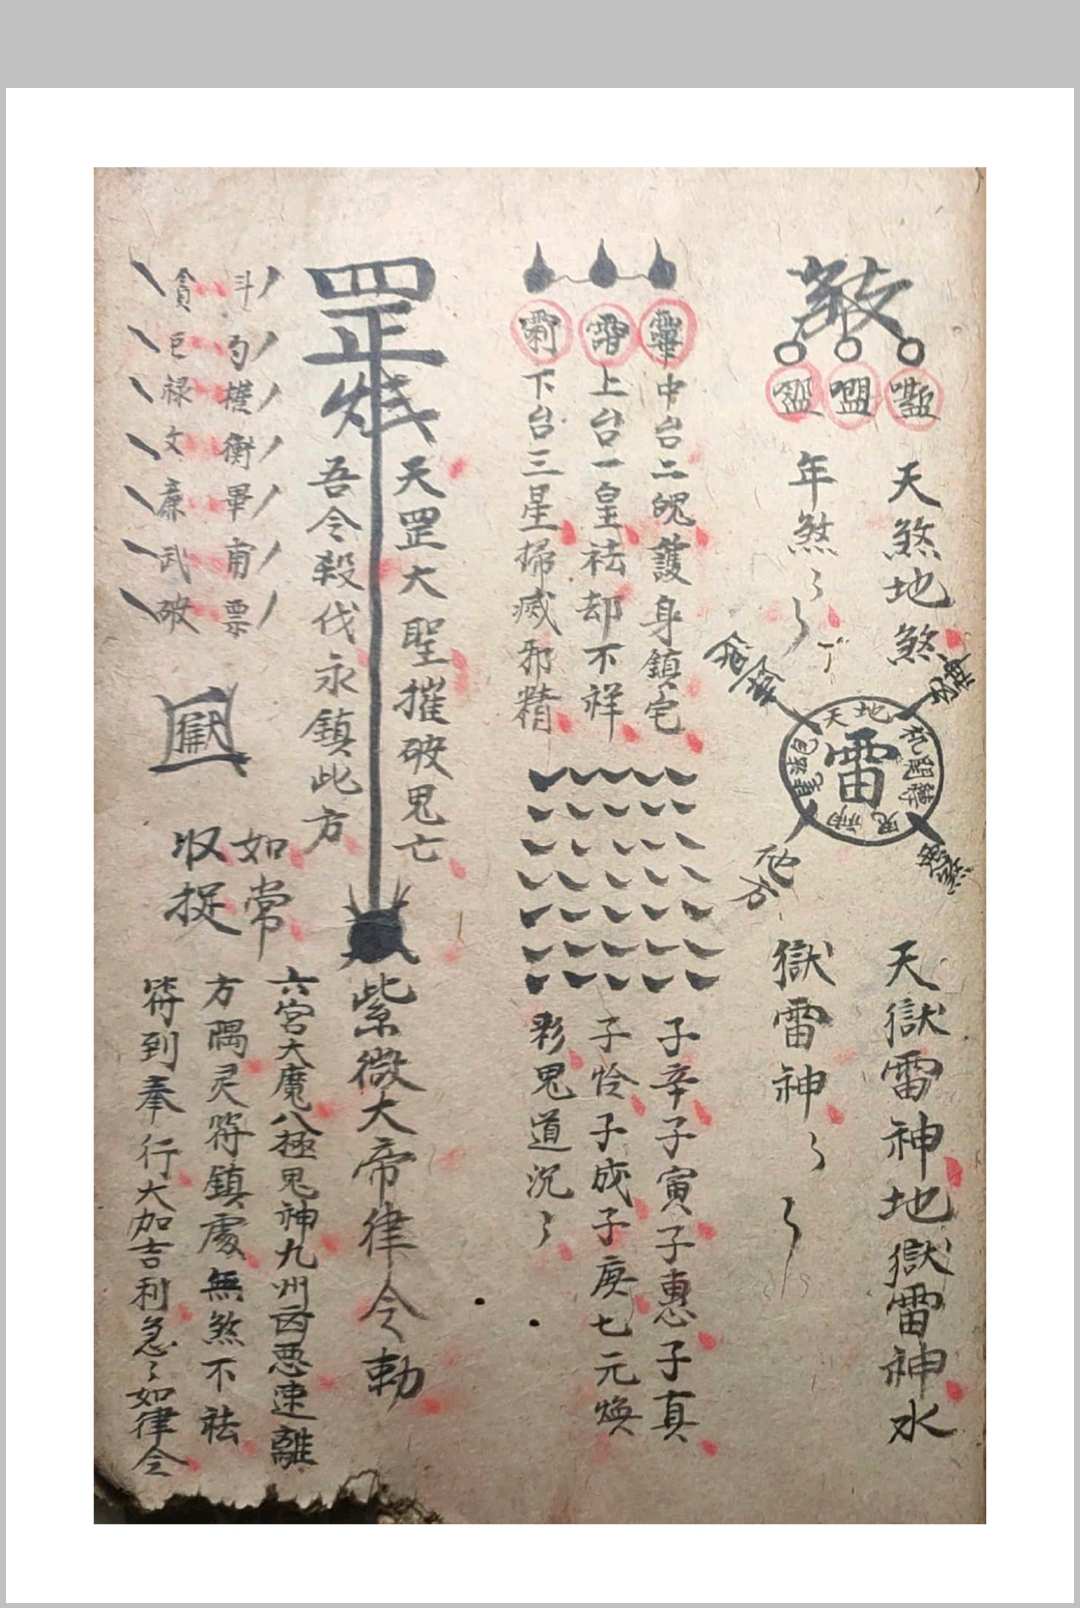 天煞地煞
年煞
雷
天地
天獄雷神地獄雷神水
獄雷神
中台二魄護身鎮宅
上台一皇祛却不祥
下台三星掃滅邪精
子辛子寅子惠子真
子怜子成子庚七元煥
彩鬼道沉
罡
天罡大聖摧破鬼亡
吾令殺伐永鎮此方
紫微大帝律令勅
斗勺權衡畢甫票
貪巨禄文廉武破
獄
如常
收捉
六宮大魔八極鬼神九州凶悪速離
方隅灵符鎮處無煞不祛
符到奉行大加吉利急〻如律令